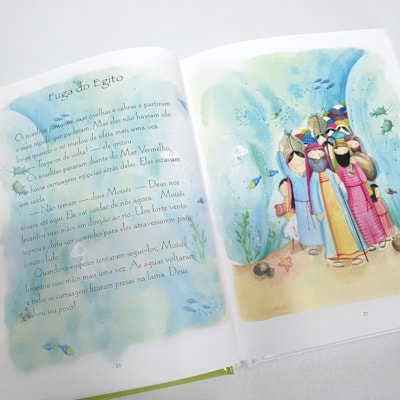 Fuga do Egito
Os israelitas juntaram suas ovelhas e cabras e partiram
o mais rápido que puderam. Mas eles não haviam ido
longe quando o rei mudou de ideia mais uma vez.
— Tragam-os de volta! — ele gritou.
Os israelitas pararam diante do Mar Vermelho,
e havia carruagens egípcias atrás deles. Eles estavam
sem saída.
— Não temam — disse Moisés. — Deus nos
trouxe até aqui. Ele vai cuidar de nós agora. Moisés
levantou suas mãos em direção ao rio. Um forte vento
soprou e abriu um caminho para eles atravessarem para
o outro lado.
Quando os egípcios tentaram segui-los, Moisés
levantou suas mãos mais uma vez. As águas voltaram
e todas as carruagens ficaram presas na lama. Deus
salvou seu povo!
36
37